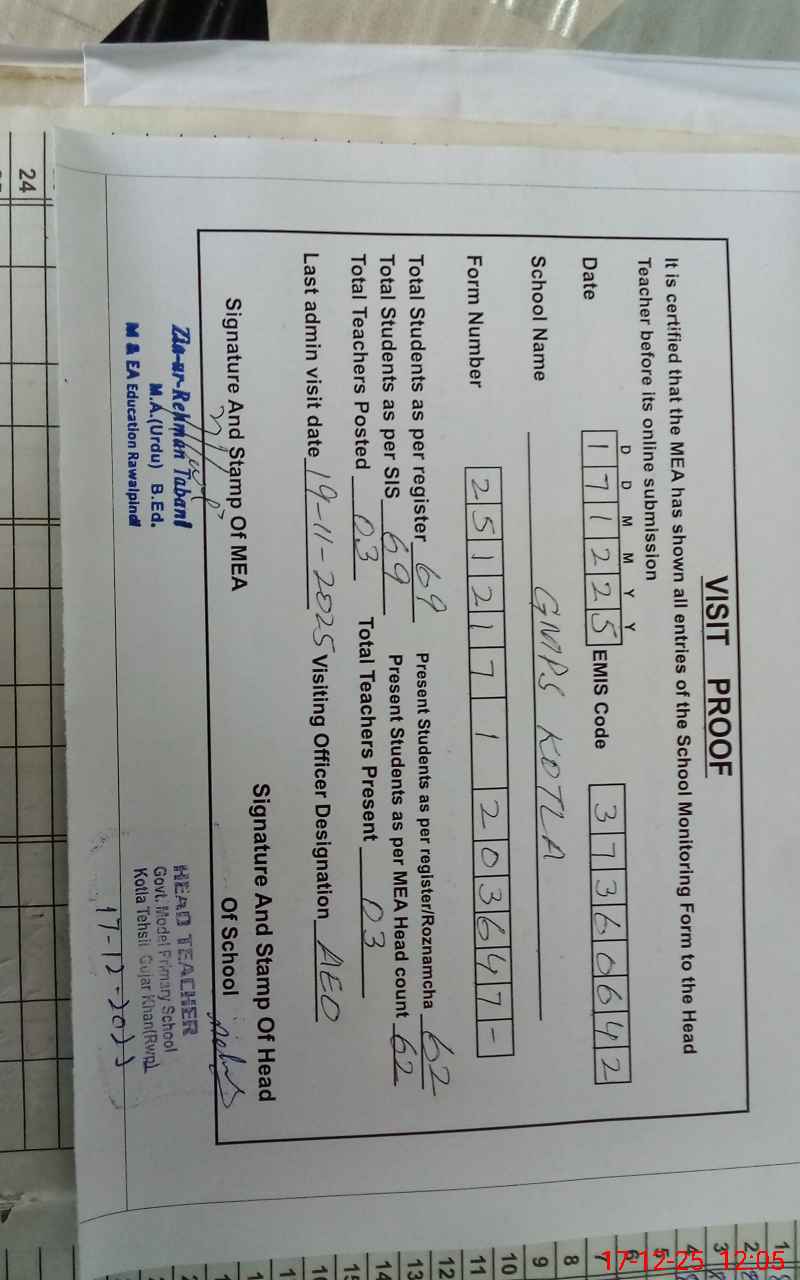 VISIT PROOF
It is certified that the MEA has shown all entries of the School Monitoring Form to the Head
Teacher before its online submission
D D M M Y Y
Date 1 7 1 2 2 5 EMIS Code 3 7 3 6 0 6 4 2
School Name GMPS KOTLA
Form Number 2 5 1 2 1 7 1 2 0 3 6 4 7 -
Total Students as per register 69 Present Students as per register/Roznamcha 62
Total Students as per SIS 69 Present Students as per MEA Head count 62
Total Teachers Posted 03 Total Teachers Present 03
Last admin visit date 19-11-2025 Visiting Officer Designation AEO
Signature And Stamp Of MEA
Signature And Stamp Of Head
Of School
Zia-ur-Rehman Tabani
M.A.(Urdu) B.Ed.
M & EA Education Rawalpindi
HEAD TEACHER
Govt. Model Primary School
Kotla Tehsil Gujar Khan(Rwp)
24
1
2
3
4
5
6
7
8
9
10
11
12
13
14
17-12-25 12:05